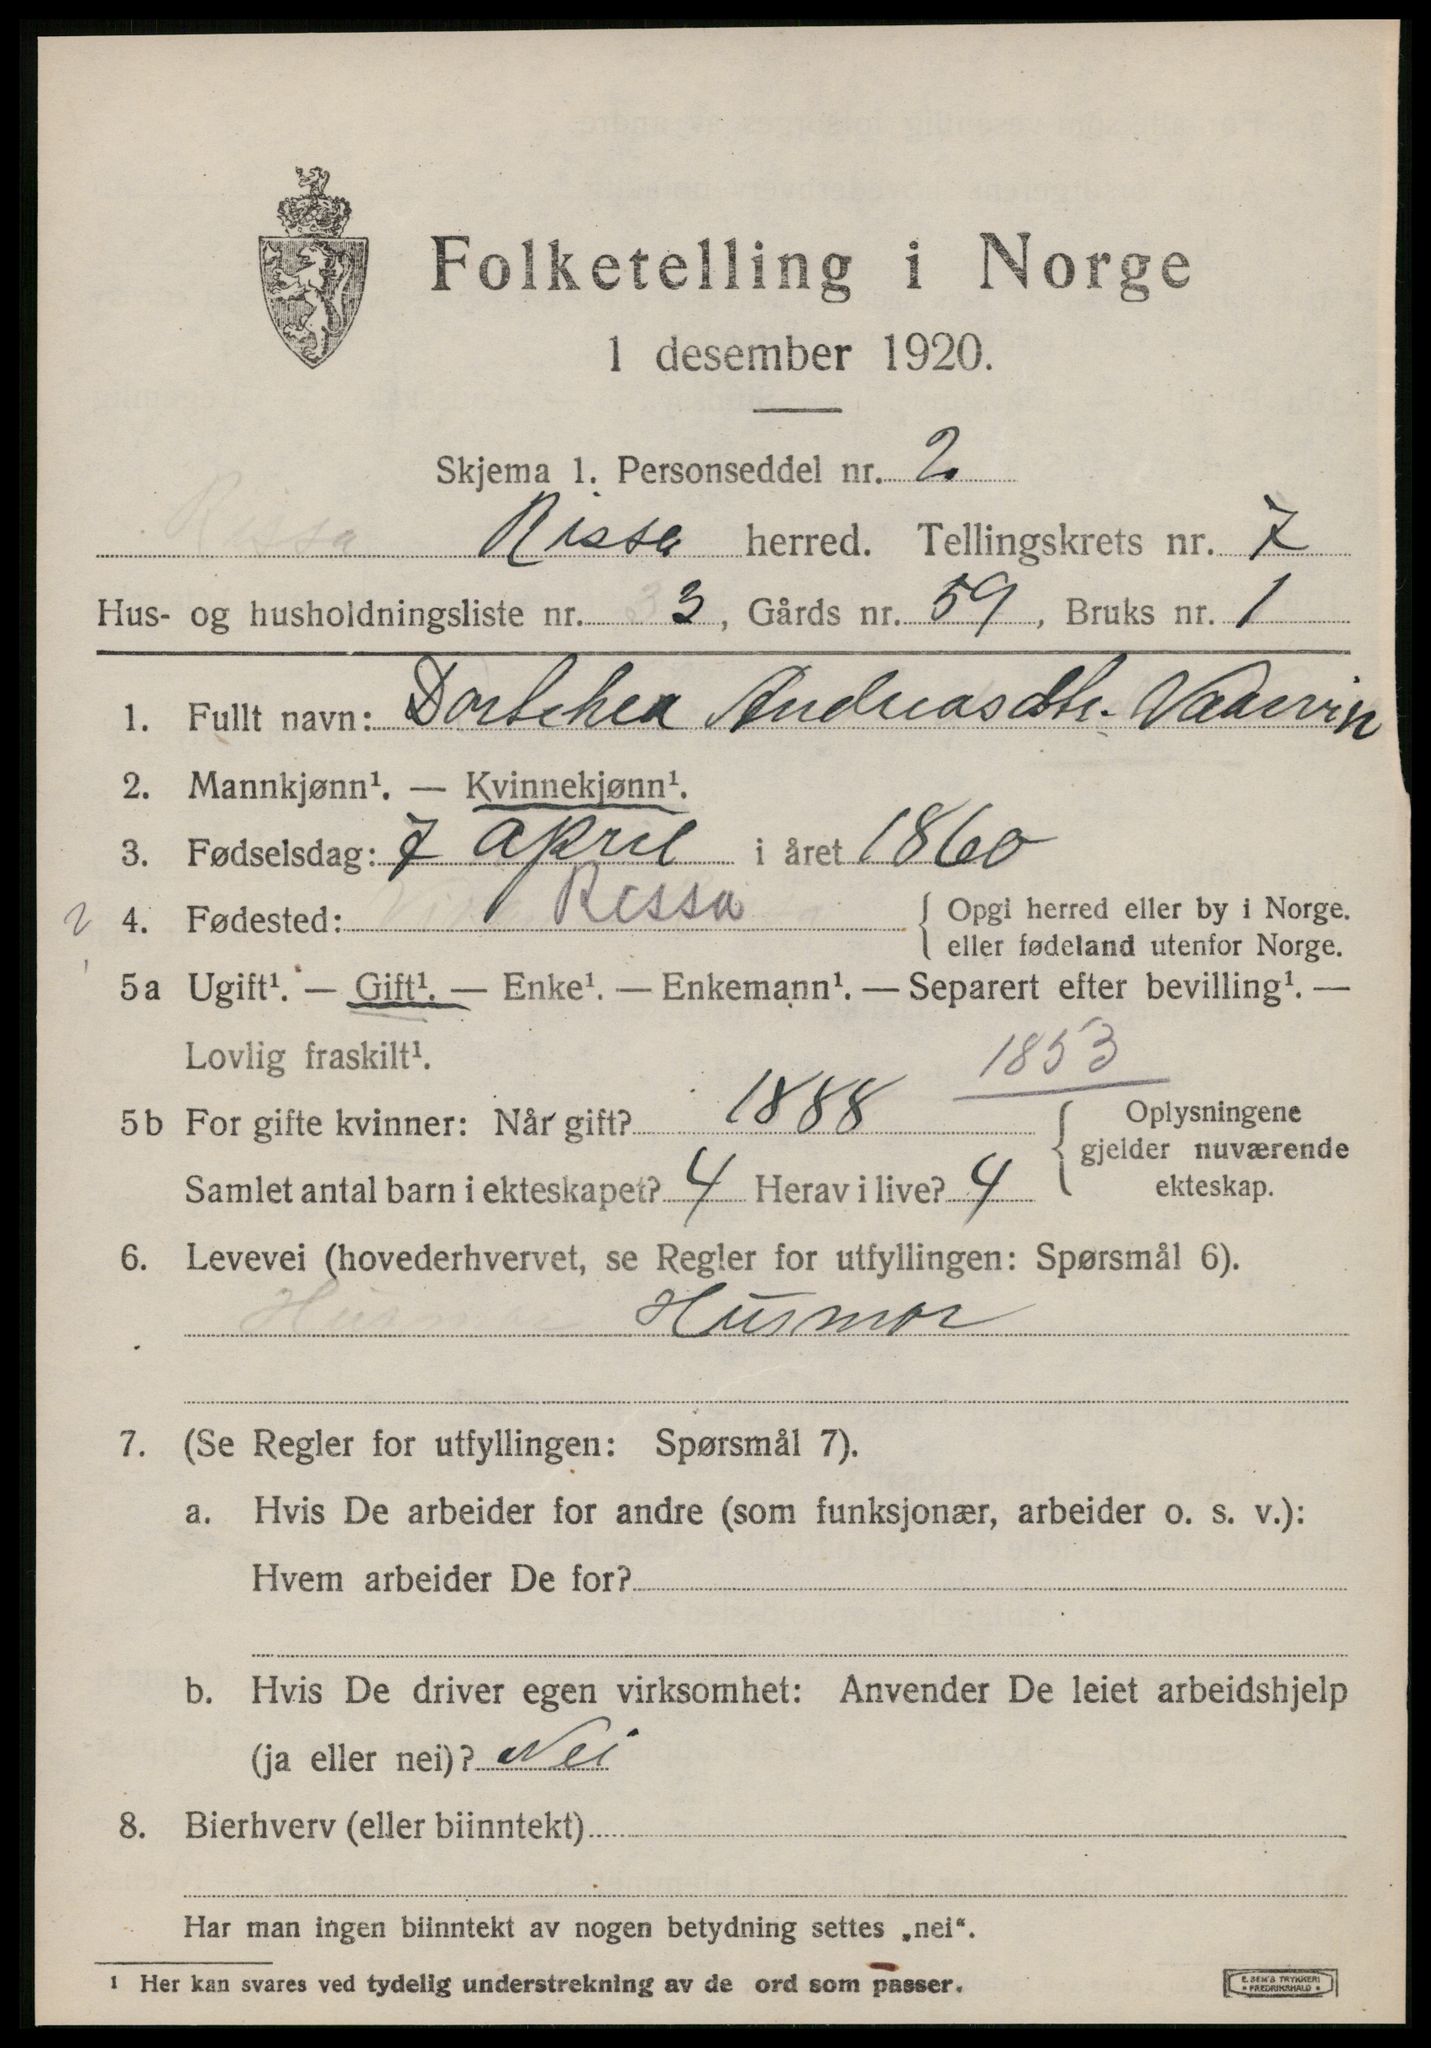 Folketelling i Norge
1 desember 1920.
Skjema 1. Personseddel nr. 2
Rissa Rissa herred. Tellingskrets nr. 7
Hus- og husholdningsliste nr. 3 3, Gårds nr. 59, Bruks nr. 1
1. Fullt navn: Dorthea Andreasdtr. Vaarvik
2. Mannkjønn¹. — Kvinnekjønn¹.
3. Fødselsdag: 7 april i året 1860
2 4. Fødested: Rissa { Opgi herred eller by i Norge.
eller fødeland utenfor Norge.
5a Ugift¹. — Gift¹. — Enke¹. — Enkemann¹. — Separert efter bevilling¹. —
Lovlig fraskilt¹.
1853
5b For gifte kvinner: Når gift? 1888 { Oplysningene
gjelder nuværende
ekteskap.
Samlet antal barn i ekteskapet? 4 Herav i live? 4
6. Levevei (hovederhvervet, se Regler for utfyllingen: Spørsmål 6).
Husmor Husmor
7. (Se Regler for utfyllingen: Spørsmål 7).
a. Hvis De arbeider for andre (som funksjonær, arbeider o. s. v.):
Hvem arbeider De for?
b. Hvis De driver egen virksomhet: Anvender De leiet arbeidshjelp
(ja eller nei)? Nei
8. Bierhverv (eller biinntekt)
Har man ingen biinntekt av nogen betydning settes „nei“.
¹ Her kan svares ved tydelig understrekning av de ord som passer.
E. SEM'S TRYKKERI
* FREDRIKSHALD *